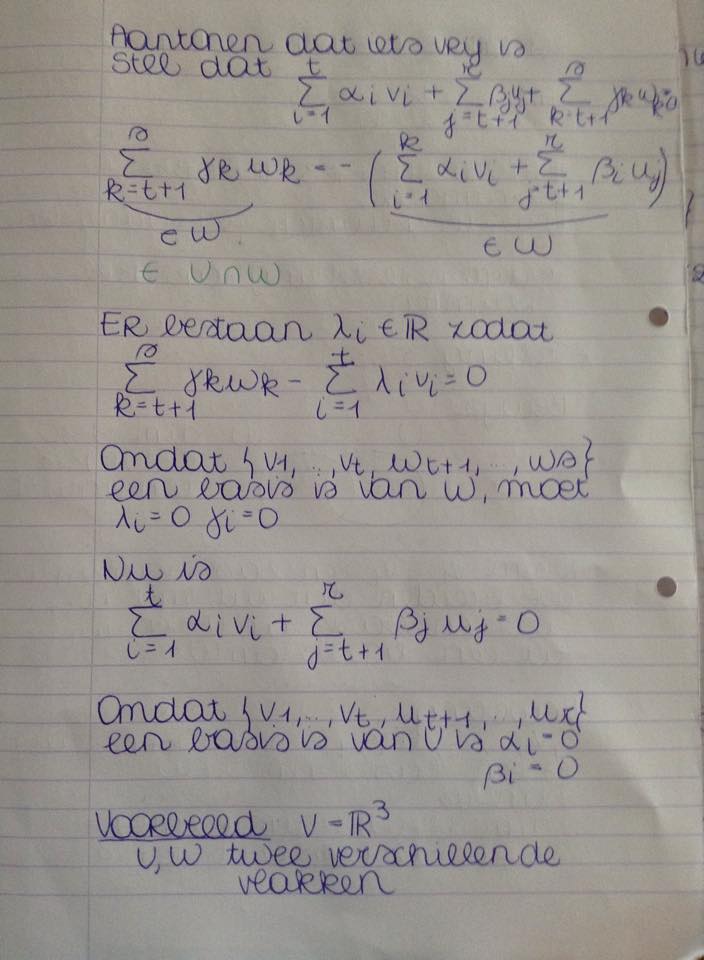 Aantonen dat iets vrij is
Stel dat
\sum_{i=1}^{t} α_i v_i + \sum_{j=t+1}^{r} β_j u_j + \sum_{k=t+1}^{s} γ_k w_k = 0
\sum_{k=t+1}^{s} γ_k w_k = - ( \sum_{i=1}^{k} α_i v_i + \sum_{j=t+1}^{r} β_i u_j )
∈ W ∈ W
∈ U ∩ W
ER bestaan λ_i ∈ ℝ zodat
\sum_{k=t+1}^{s} γ_k w_k - \sum_{i=1}^{t} λ_i v_i = 0
Omdat {v1, .., vt, w_{t+1}, .., ws}
een basis is van W, moet
λ_i = 0 γ_i = 0
Nu is
\sum_{i=1}^{t} α_i v_i + \sum_{j=t+1}^{r} β_j u_j = 0
Omdat {v1, .., vt, u_{t+1}, .., ur}
een basis is van U is α_i = 0
β_i = 0
Voorbeeld V = ℝ^3
U, W twee verschillende
vlakken